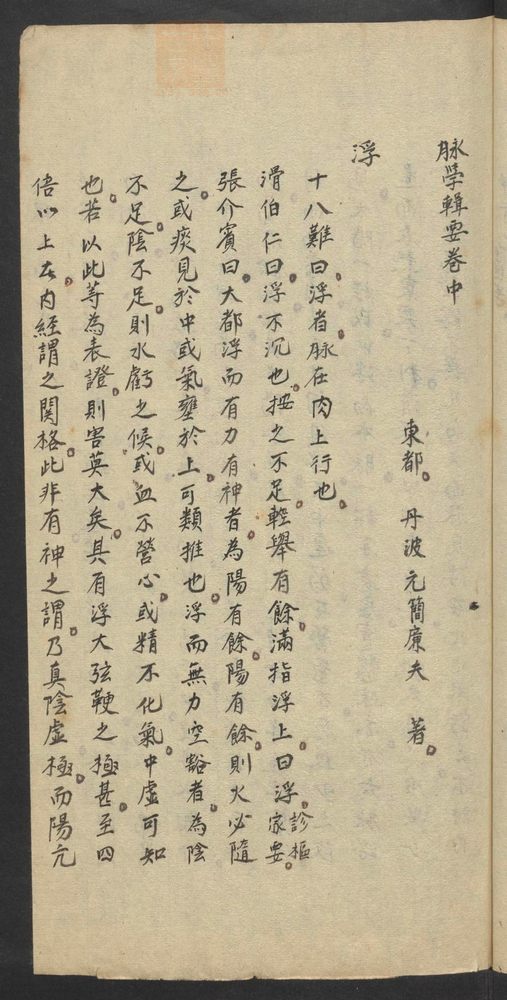 脉学輯要卷中
東都 丹波元簡廉夫 著
浮
十八難曰浮者脉在肉上行也
滑伯仁曰浮不沉也按之不足輕舉有餘滿指浮上曰浮診家樞要
張介賓曰大都浮而有力有神者為陽有餘陽有餘則火必隨
之或痰見於中或氣壅於上可類推也浮而無力空豁者為陰
不足陰不足則水虧之候或血不營心或精不化氣中虛可知
也若以此等為表證則害英大矣其有浮大弦鞕之極甚至四
倍以上在內經謂之関格此非有神之謂乃真陰虛極而陽亢